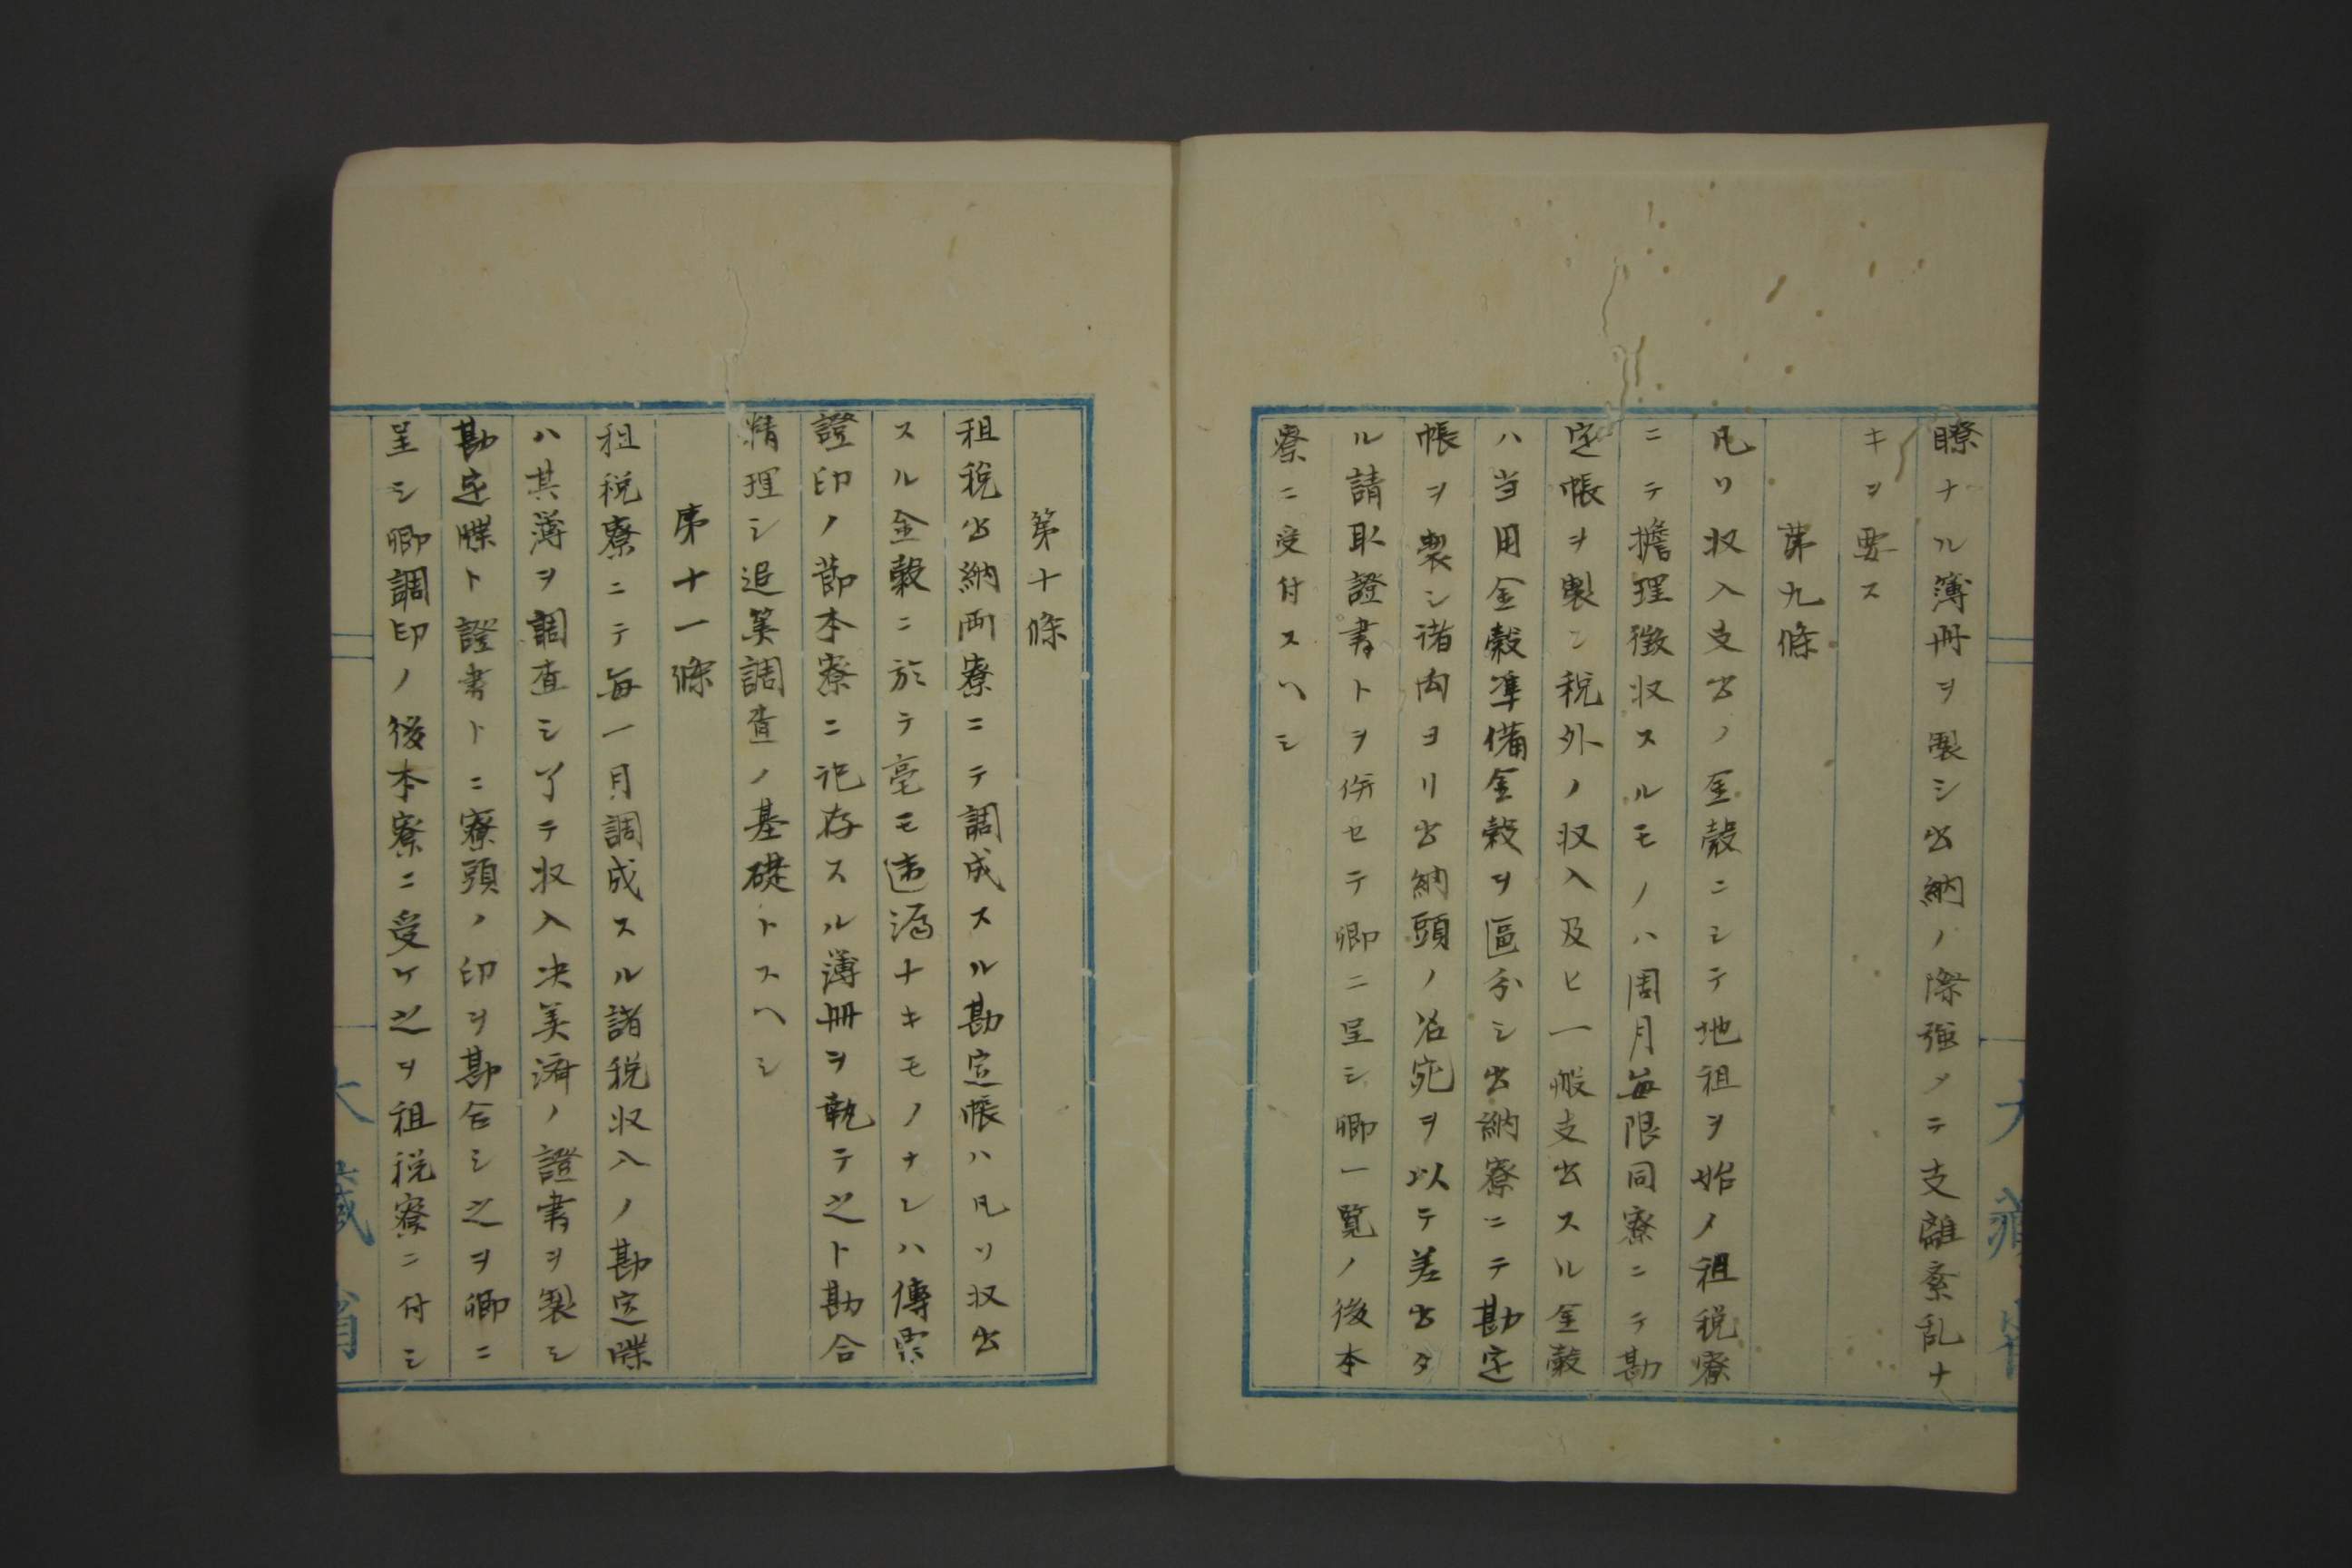 瞭ナル簿冊ヲ製シ出納ノ際強メテ支離紊乱ナ
キヲ要ス
第九條
凡ソ収入支出ノ金穀ニシテ地租ヲ始メ租税寮
ニテ擔理徴収スルモノハ周月毎限同寮ニテ勘
定帳ヲ製シ税外ノ収入及ヒ一般支出スル金穀
ハ当用金穀準備金穀ヲ區分シ出納寮ニテ勘定
帳ヲ製シ諸向ヨリ出納頭ノ名宛ヲ以テ差出タ
ル請取證書トヲ併セテ卿ニ呈シ卿一覧ノ後本
寮ニ受付スヘシ
第十條
租税出納両寮ニテ調成スル勘定帳ハ凡ソ収出
スル金穀ニ於テ毫モ遺漏ナキモノナレハ傳票
證印ノ節本寮ニ記存スル簿冊ヲ執テ之ト勘合
精理シ追算調査ノ基礎トスヘシ
第十一條
租税寮ニテ毎一月調成スル諸税収入ノ勘定牒
ハ其簿ヲ調査シ了テ収入决算済ノ證書ヲ製シ
勘定牒ト證書トニ寮頭ノ印ヲ勘合シ之ヲ卿ニ
呈シ卿調印ノ後本寮ニ受ケ之ヲ租税寮ニ付シ
大藏省
大藏省